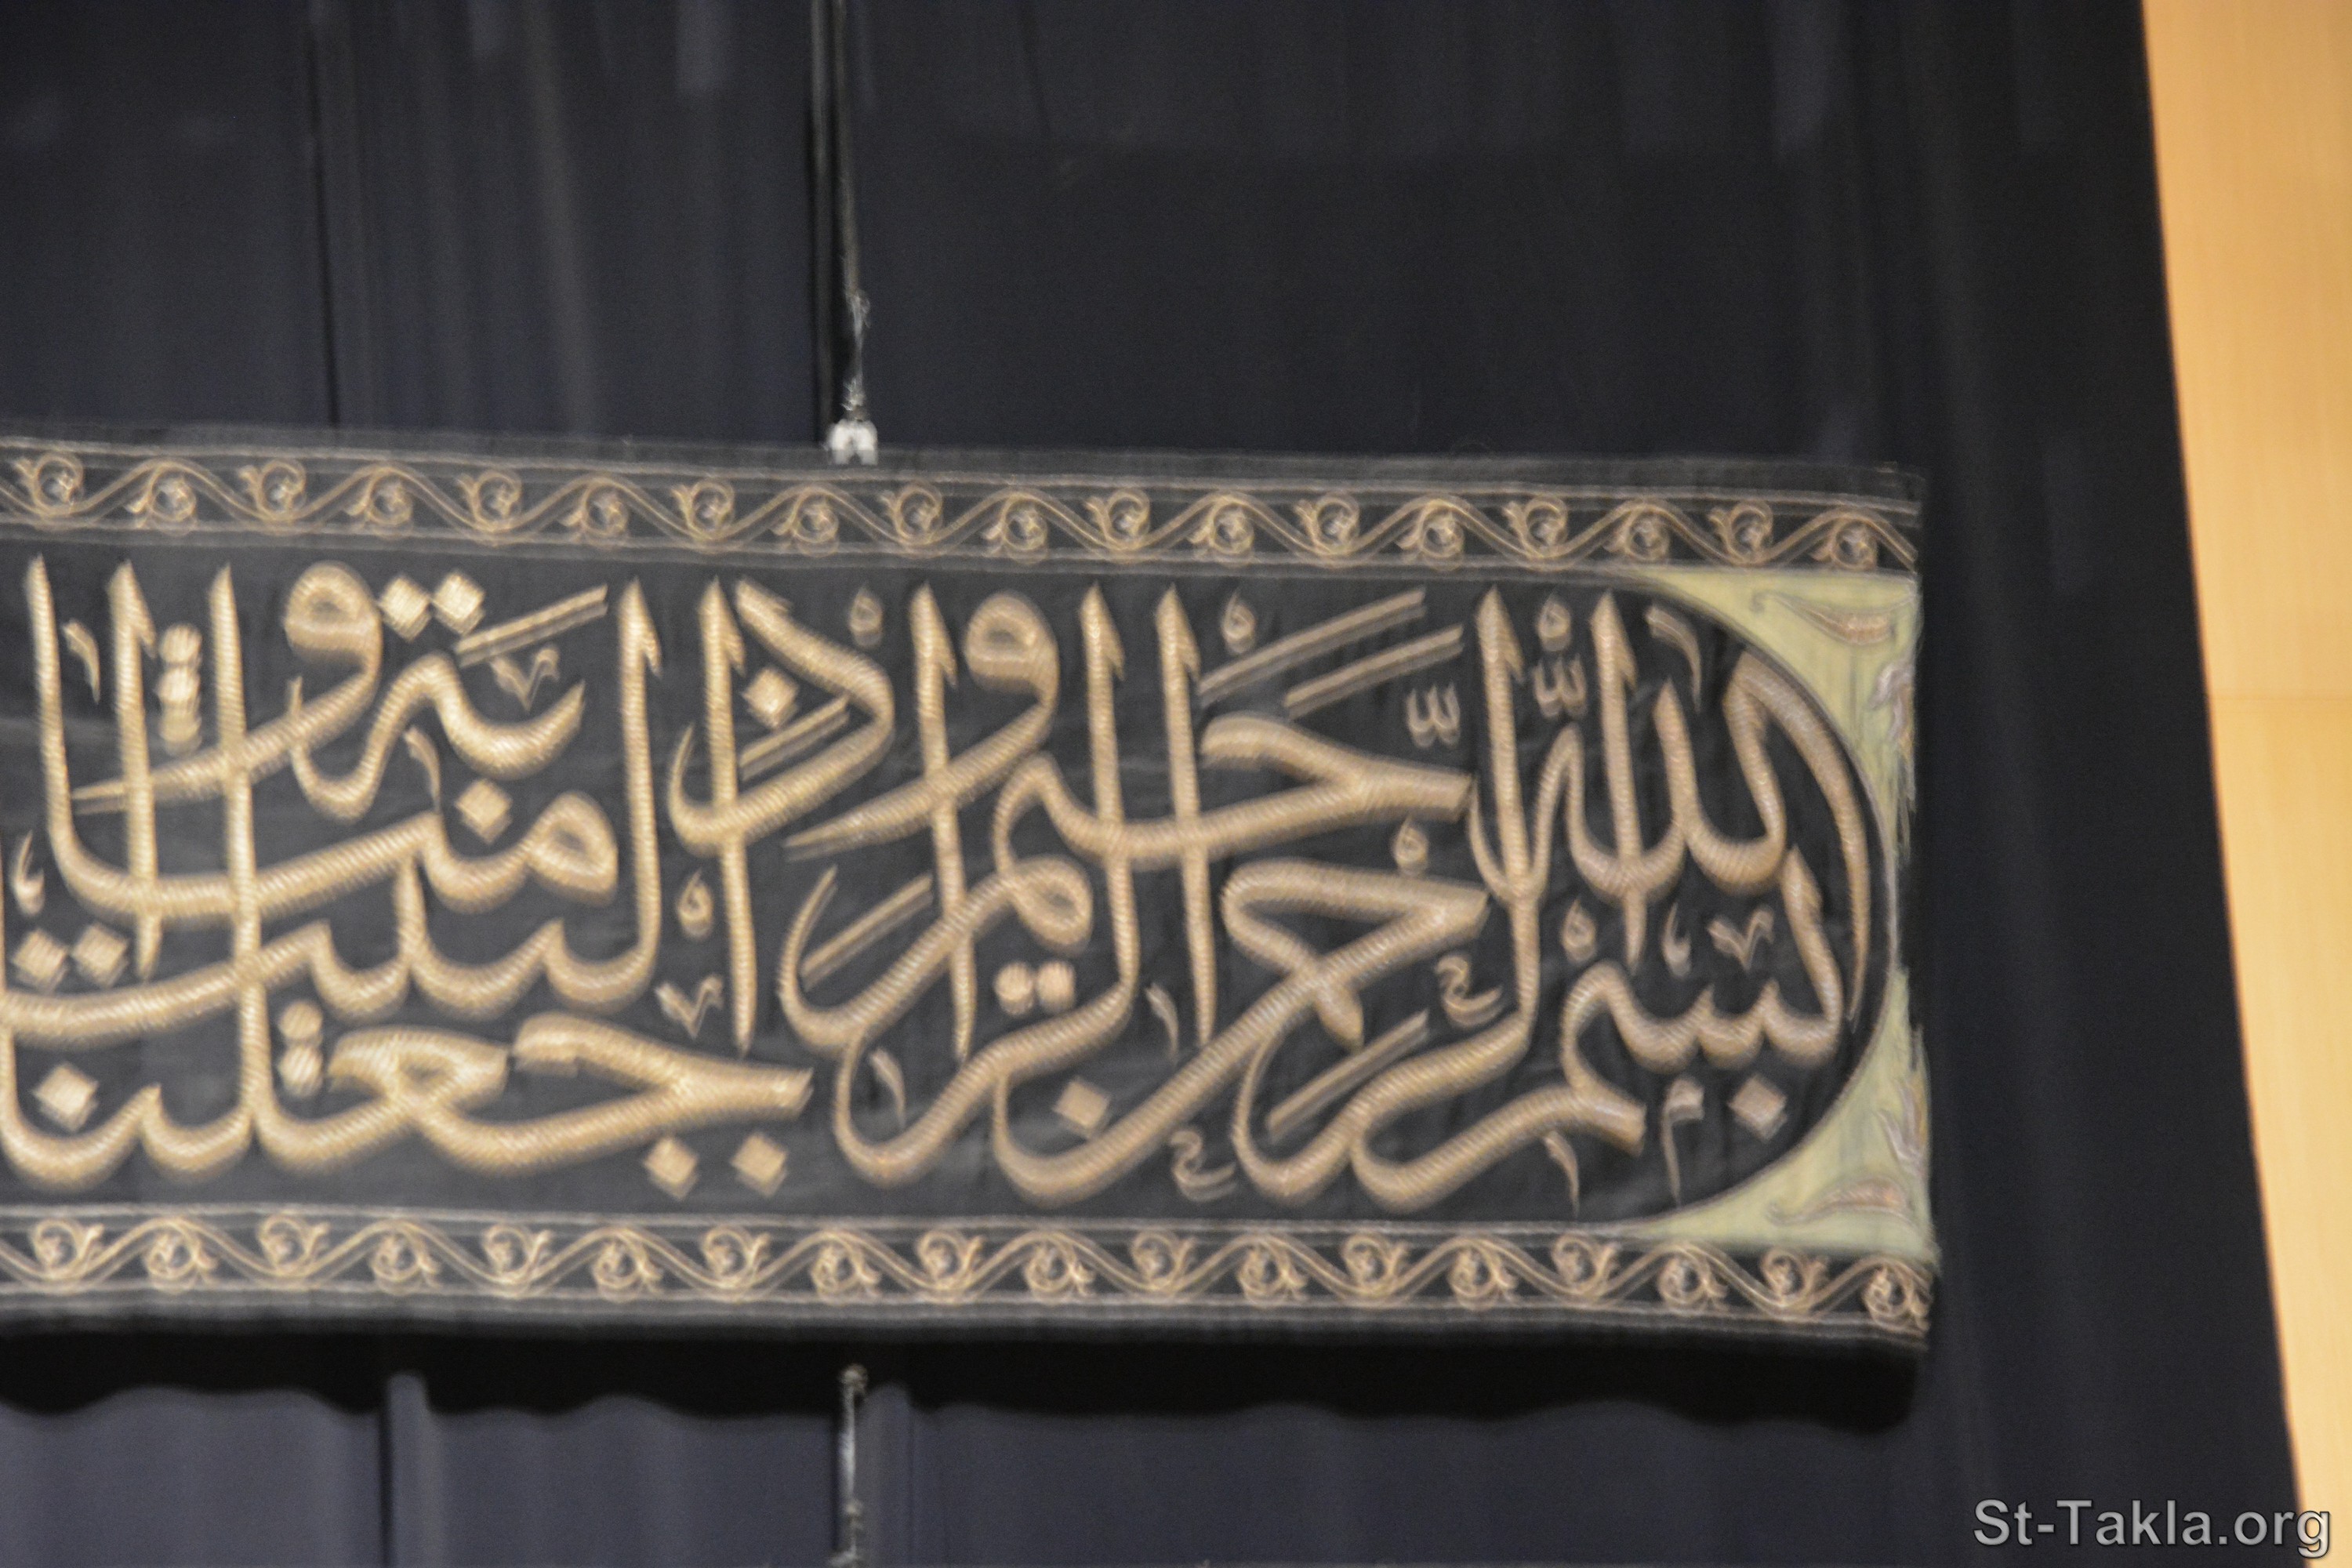 بسم الله الرحمن الرحيم وإذ جعلنا البيت مثابة و
St-Takla.org